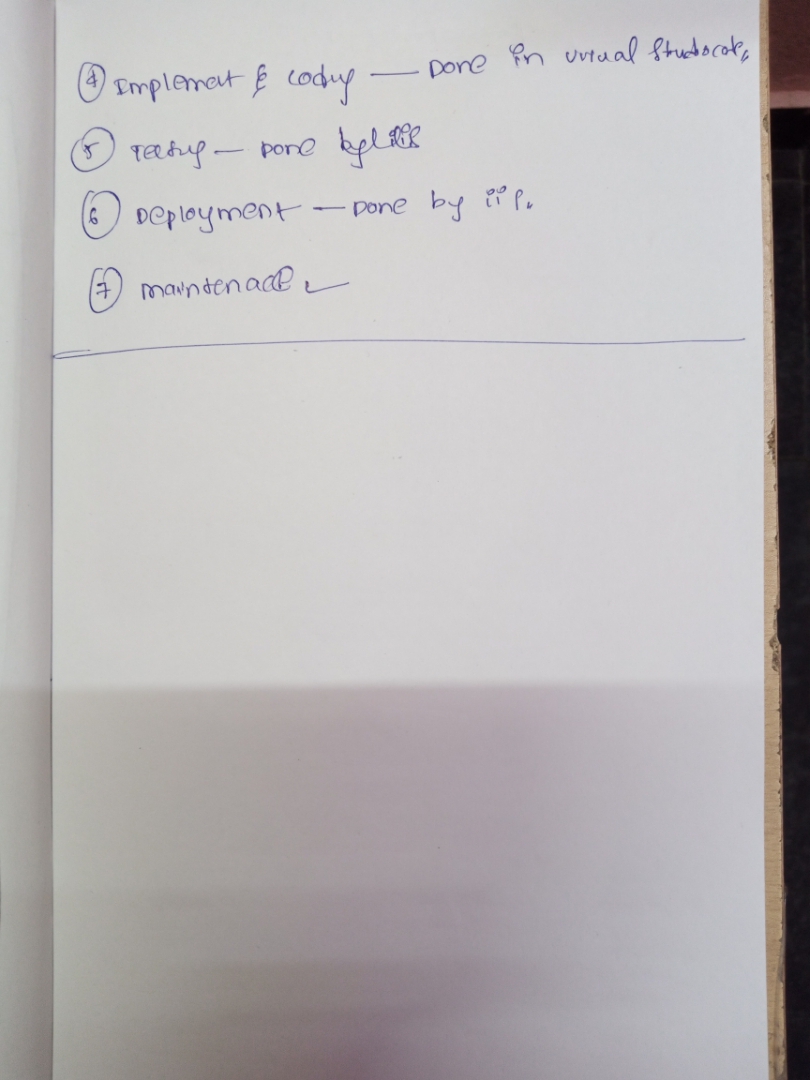 ④ Implemet & coding — Done in visual studiocode,
⑤ Testing — Done by
⑥ Deployment — Done by iis.
⑦ maintenace